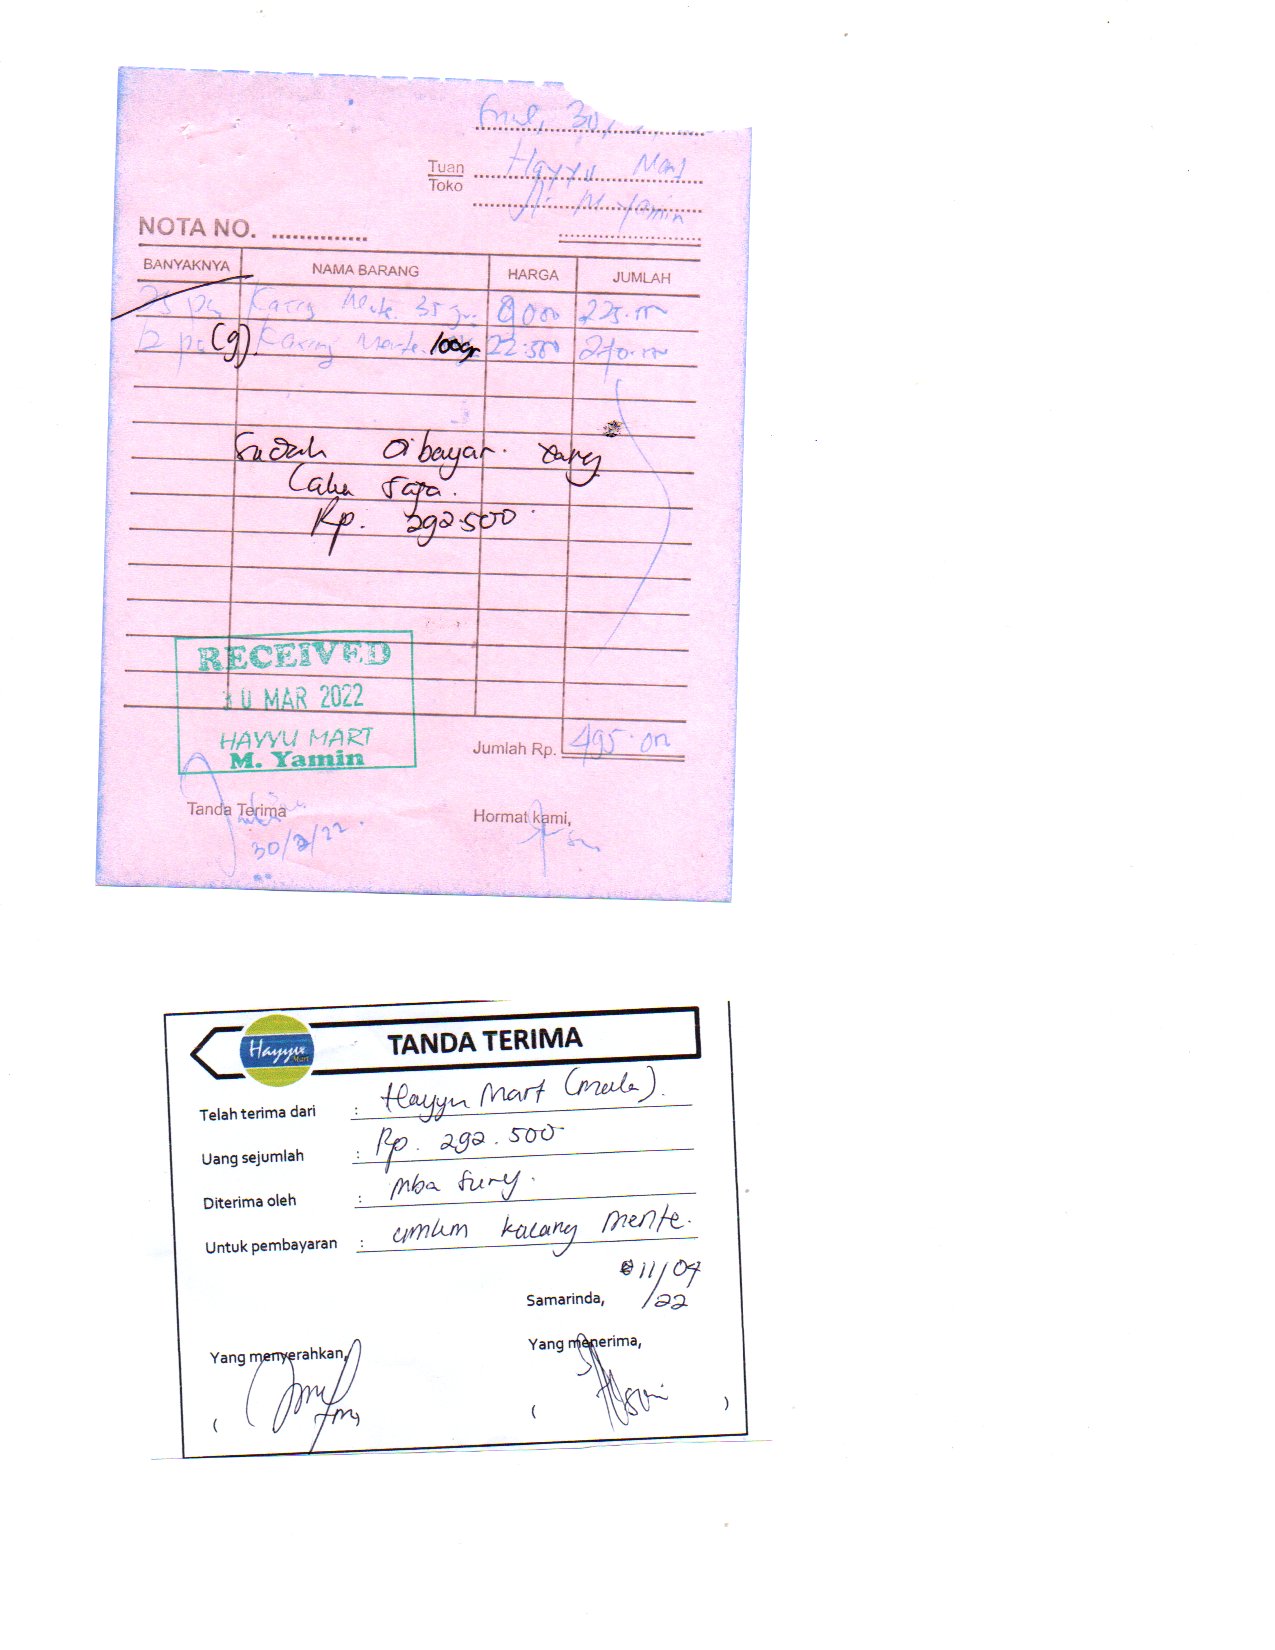 30
Tuan Hayyu Mart
Toko Jl. M. Yamin
NOTA NO. ..............
BANYAKNYA NAMA BARANG HARGA JUMLAH
25 pcs Kacang Mente 35 gr 9000 225.000
12 pcs (9) Kacang Mente 100gr 22.500 270.000
Sudah dibayar yang
laku saja.
Rp. 292.500
RECEIVED
30 MAR 2022
HAYYU MART
M. Yamin
Jumlah Rp. 495.000
Tanda Terima Hormat kami,
30/3/22
TANDA TERIMA
Hayyu
Mart
Telah terima dari : Hayyu Mart (Meila).
Uang sejumlah : Rp. 292.500
Diterima oleh : Mba Sury.
Untuk pembayaran : umkm kacang mente.
Samarinda, 11/04/22
Yang menyerahkan, Yang menerima,
( ( )